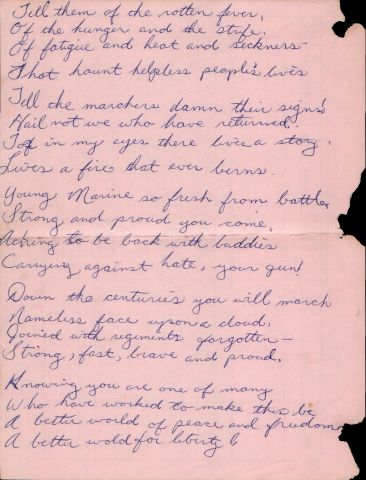 Tell them of the rotten fever,
Of the hunger and the stife.
Of fatigue and heat and sickness -
That haunt helpless people's lives
Tell the marchers damn their signs!
Hail not we who have returned!
For in my eyes there lives a story.
Lives a fire that ever berns.
Young Marine so fresh from battle,
Strong and proud you come,
Aching to be back with buddies
Carrying against hate, your gun!
Down the centuries you will march
Nameless face upon a cloud,
Joined with regiments forgotten -
Strong, fast, brave and proud.
Knowing you are one of many
Who have worked to make this be
A better world of peace and freedom
A better wold for liberty